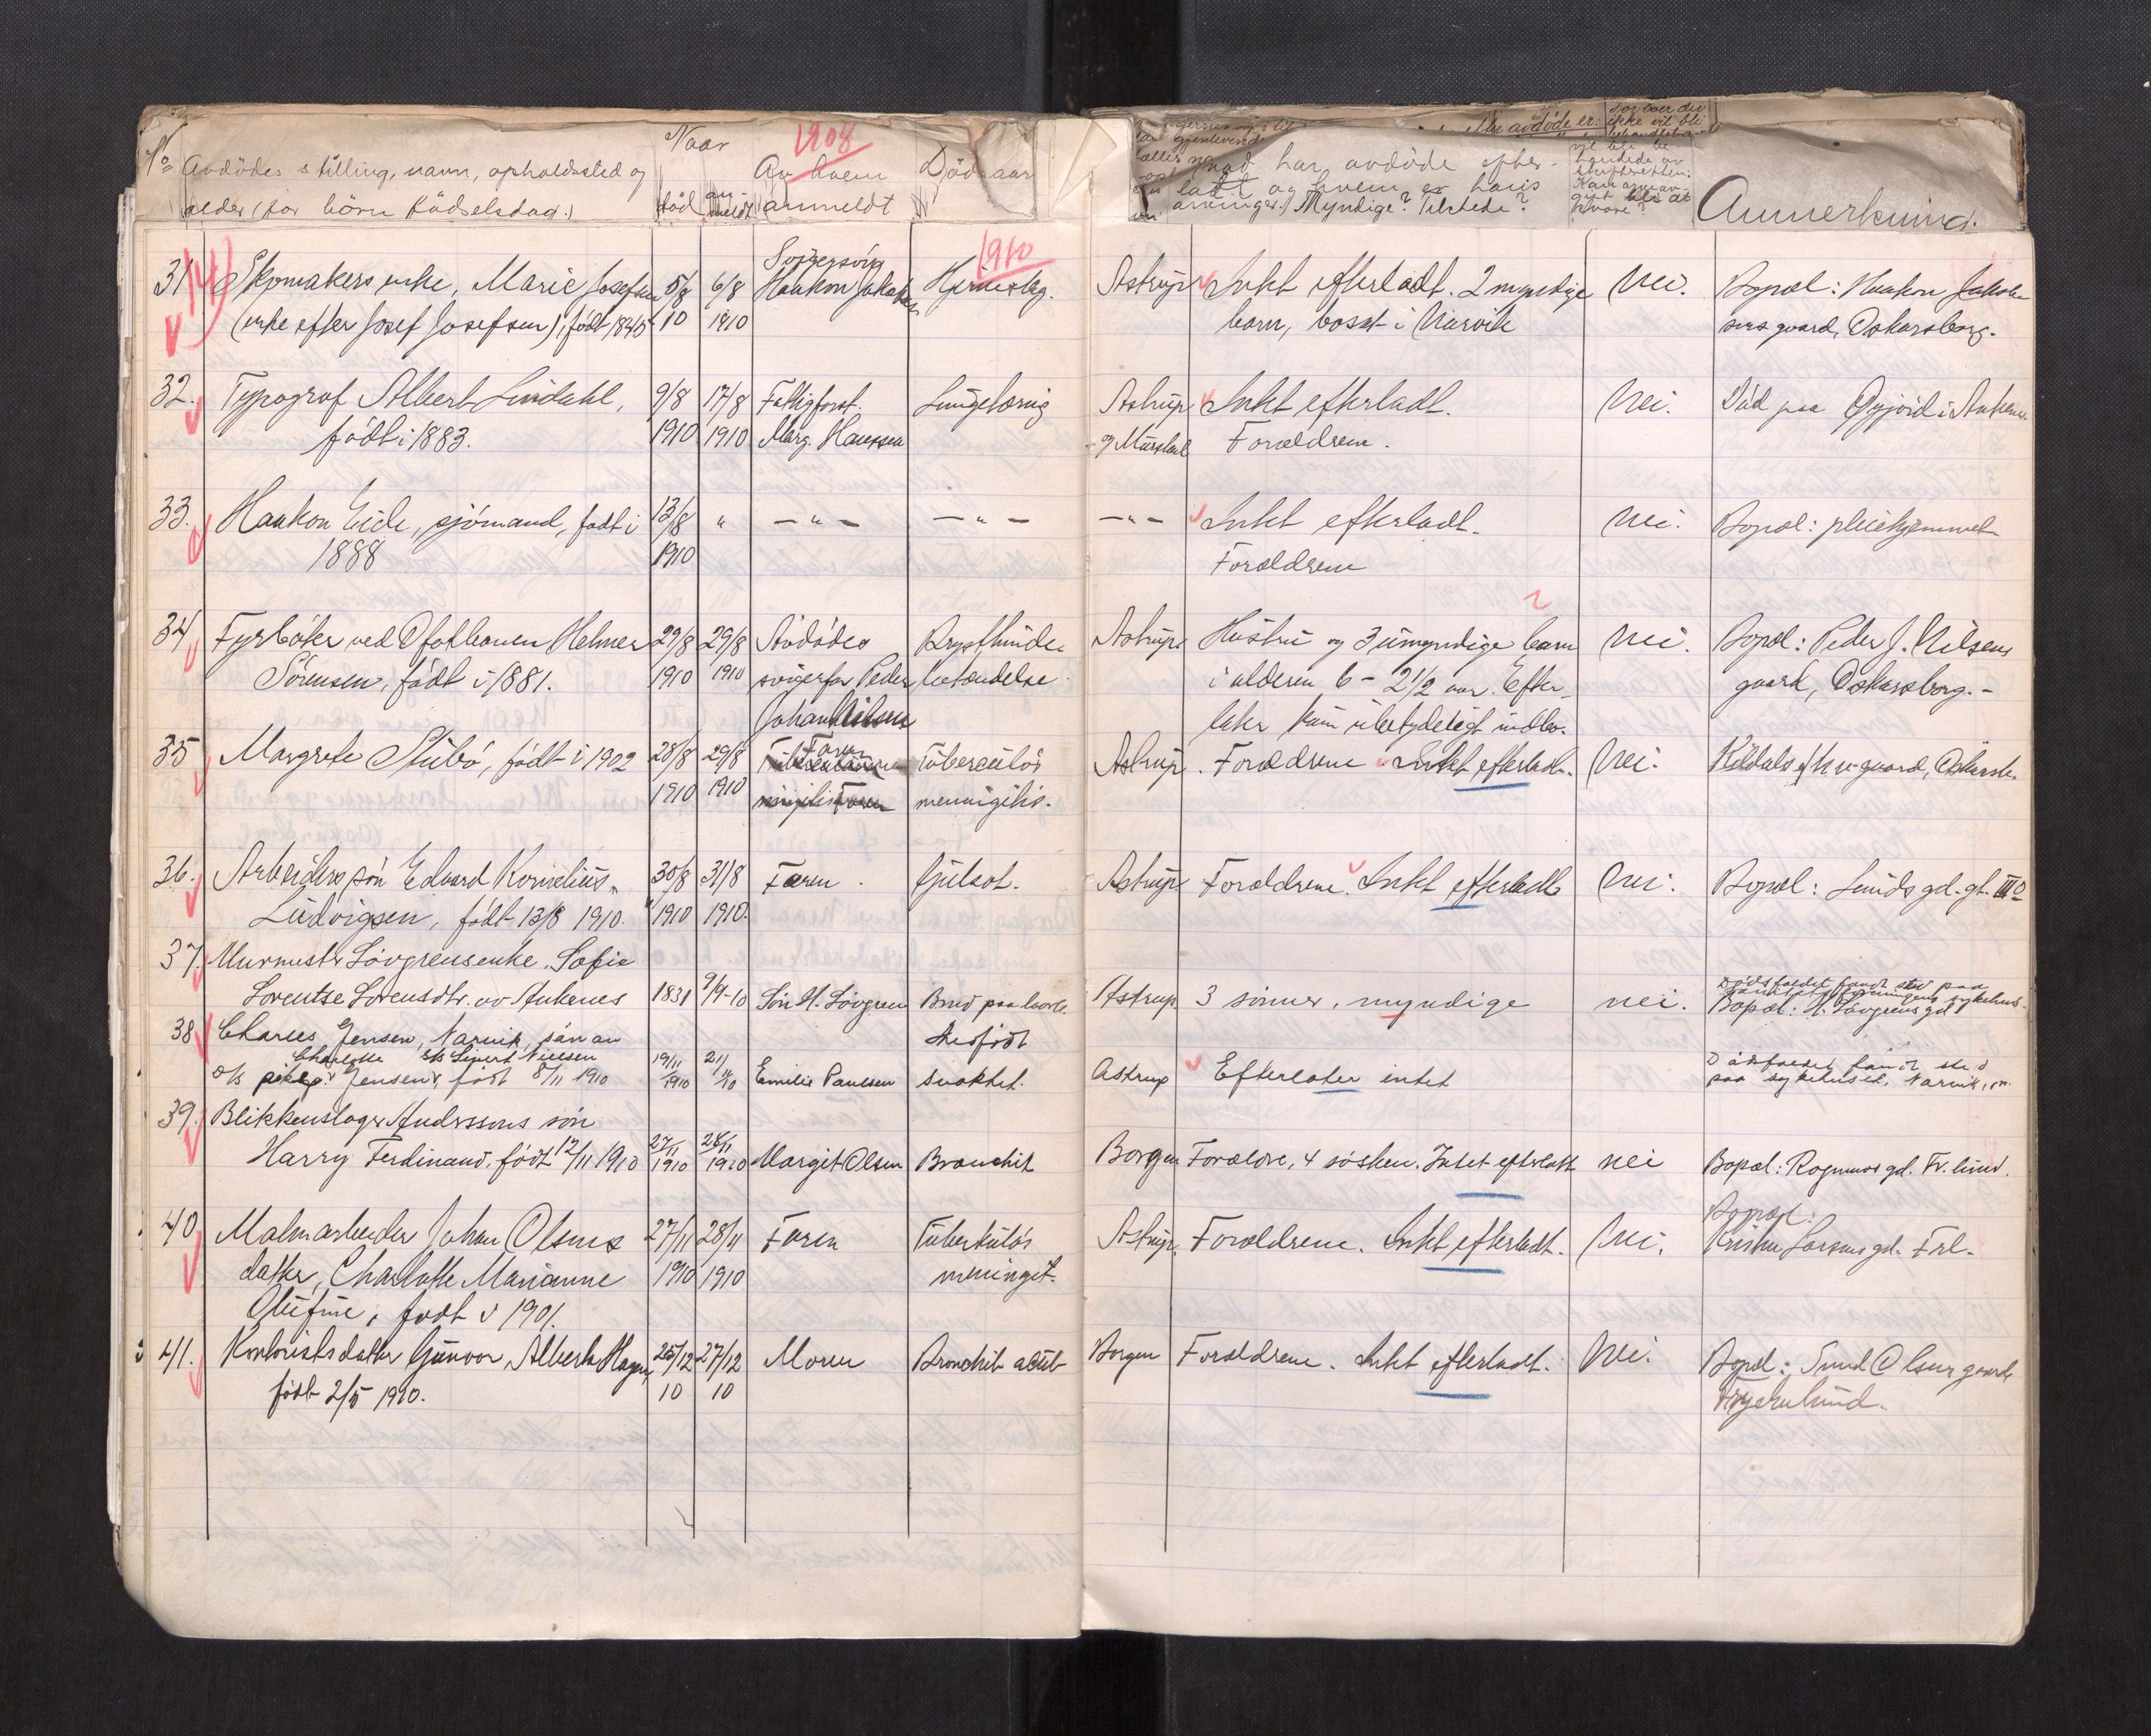 No
Avdödes stilling, navn, opholdssted og
alder (for börn födselsdag.)
Naar
död
an-
meldt
1908
Av hvem
anmeldt
Dödsaar
gjenlevende
Har avdöde efter-
latt og hvem er hans
arvinger? Myndige? Tilstede?
Når avdöde er:
ikke vil bli
behandlet av
skifteretten.
Anmerkning.
31
Skomakers enke, Marie Josefsen
(enke efter Josef Josefsen), födt 1845
5/8
10
6/8
1910
Svigersön
Haakon Jakobsen
1910
Hjerneslag.
Astrup
Intet efterladt. 2 myndige
barn, bosat i Narvik
Nei.
Bopæl: Haakon Jakob-
sens gaard, Oskarsborg.
32.
Typograf Albert Lindahl,
födt i 1883.
9/8
1910
17/8
1910
Fattigforst.
Marg. Hanssen
Lungetæring
Astrup
Intet efterladt.
Forældrene.
Nei.
Död paa Öyjord i Ankenes
33.
Haakon Eide, sjömand, födt i
1888
13/8
1910
"
— " —
— " —
— " —
Intet efterladt.
Forældrene
Nei.
Bopæl: pleiehjemmet
34
Fyrböter ved Ofotbanen Helmer
Sörensen, födt i 1881.
29/8
1910
29/8
1910
Avdödes
svigerfar Peder
Johan Nilsen
Brysthinde-
betændelse
Astrup
Hustru og 3 umyndige barn
i alderen 6 - 2 1/2 aar. Efter-
later kun ubetydeligt indbo.
Nei.
Bopæl: Peder J. Nilsens
gaard, Oskarsborg. -
35
Margrete Stubö, födt i 1902
28/8
1910
29/8
1910
Faren
Tuberculös
mennigitis.
Astrup.
Forældrene Intet efterladt.
Nei.
36.
Arbeiders sön Edvard Kornelius
Ludvigsen, födt 13/8 1910.
30/8
1910
31/8
1910.
Faren.
Gulsot.
Astrup
Forældrene. Intet efterladt
Nei.
Bopæl: Lunds gd. gt. III
37.
Murmester Lövgrens enke. Sofie
Lorentse Lorensdtr. av Ankenes
1831
9/9-10
Sön H. Lövgren
Astrup
3 sönner, myndige
nei.
Dödsfaldet fandt sted paa
sanitetsforeningens sykehus.
Bopæl: H. Lövgrens gd
38
Charles Jensen, Narvik, sön av
Charlotte
Jensen, födt 8/11 1910
19/11
1910
21/11
10
Emilie Paulsen
Medfödt
svakhet.
Astrup
Efterlater intet
Dödsfaldet fandt sted
paa sykehuset, Narvik,
39.
Blikkenslager Andersons sön
Harry Ferdinand, födt 12/11 1910
27/11
1910
28/11
1910
Margit Olsen
Bronchit
Borgen
Forældre, 4 sösken. Intet efterlatt
nei
Bopæl: Rognmos gd. Fr. lund.
40
Malmarbeider Johan Olsens
datter, Charlotte Marianne
Olufine, födt i 1901.
27/11
1910
28/11
1910
Faren
Tuberkulös
meningit.
Astrup.
Forældrene. Intet efterladt.
Nei.
Bopæl:
Kristen Larsens gd. Frl.
41.
Kontorists datter Gunvor Alberta Hagen,
födt 2/5 1910.
25/12
10
27/12
10
Moren
Bronchit acut
Borgen
Forældrene. Intet efterladt.
Nei.
Bopæl: Smed Olsens gaard
Frydenlund.